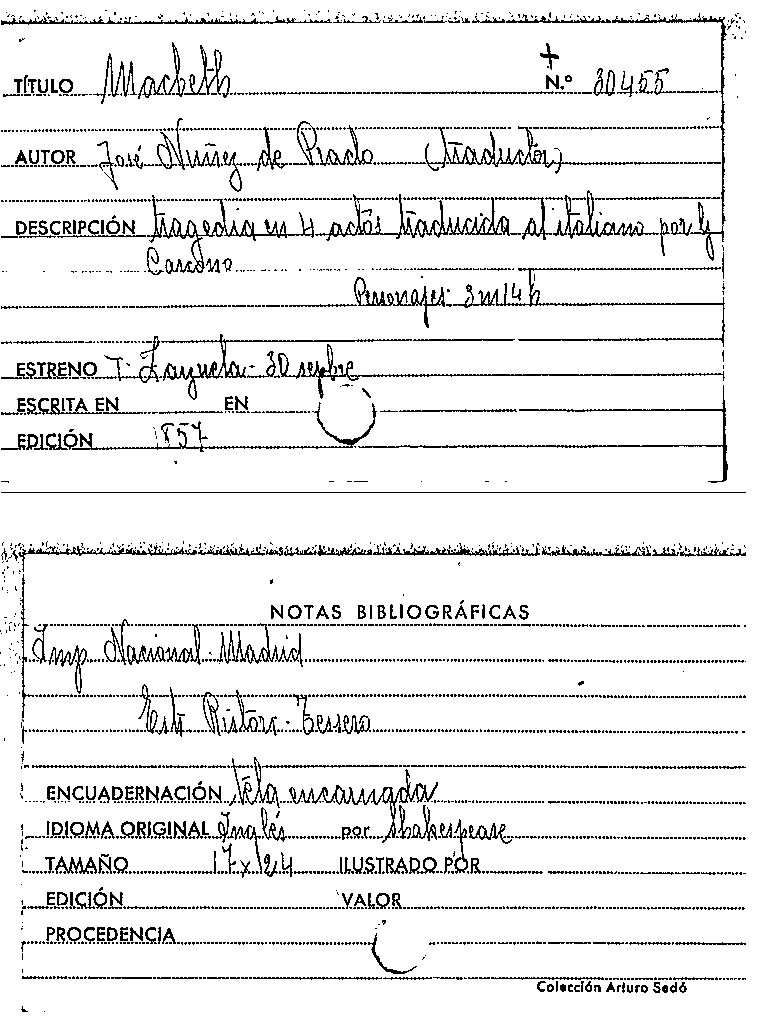 TÍTULO Macbeth + N.º 30455
AUTOR José Nuñez de Prado (traductor)
DESCRIPCIÓN tragedia en 4 actos traducida al italiano por
Personajes: 3m 14h
ESTRENO T. Zarzuela - 30 sepbre
ESCRITA EN EN
EDICIÓN 1857
NOTAS BIBLIOGRÁFICAS
Imp Nacional - Madrid
Ristori - Tessero
ENCUADERNACIÓN tela encarnada
IDIOMA ORIGINAL Inglés por Shakespeare
TAMAÑO 17 x 24 ILUSTRADO POR
EDICIÓN VALOR
PROCEDENCIA
Colección Arturo Sedó